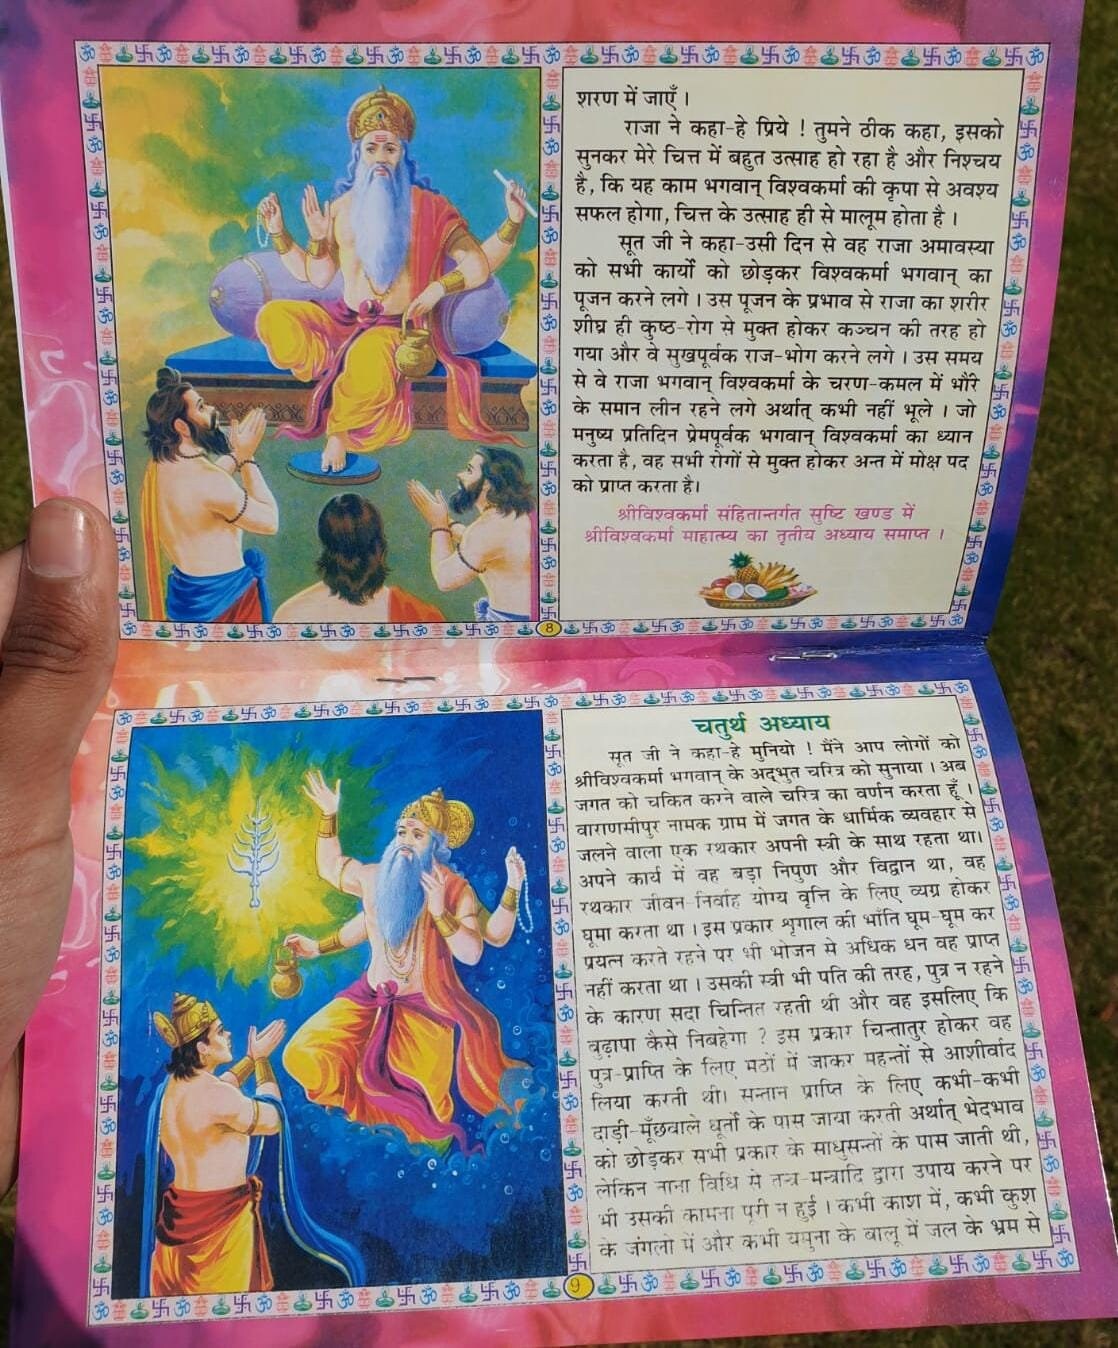 शरण में जाएँ ।
राजा ने कहा-हे प्रिये ! तुमने ठीक कहा, इसको
सुनकर मेरे चित्त में बहुत उत्साह हो रहा है और निश्चय
है, कि यह काम भगवान् विश्वकर्मा की कृपा से अवश्य
सफल होगा, चित्त के उत्साह ही से मालूम होता है ।
सूत जी ने कहा-उसी दिन से वह राजा अमावस्या
को सभी कार्यों को छोड़कर विश्वकर्मा भगवान् का
पूजन करने लगे । उस पूजन के प्रभाव से राजा का शरीर
शीघ्र ही कुष्ठ-रोग से मुक्त होकर कञ्चन की तरह हो
गया और वे सुखपूर्वक राज-भोग करने लगे । उस समय
से वे राजा भगवान् विश्वकर्मा के चरण-कमल में भौंरे
के समान लीन रहने लगे अर्थात् कभी नहीं भूले । जो
मनुष्य प्रतिदिन प्रेमपूर्वक भगवान् विश्वकर्मा का ध्यान
करता है, वह सभी रोगों से मुक्त होकर अन्त में मोक्ष पद
को प्राप्त करता है।
श्रीविश्वकर्मा संहितान्तर्गत सृष्टि खण्ड में
श्रीविश्वकर्मा माहात्म्य का तृतीय अध्याय समाप्त ।
8
चतुर्थ अध्याय
सूत जी ने कहा-हे मुनियो ! मैंने आप लोगों को
श्रीविश्वकर्मा भगवान् के अद्भुत चरित्र को सुनाया । अब
जगत को चकित करने वाले चरित्र का वर्णन करता हूँ ।
वाराणसीपुर नामक ग्राम में जगत के धार्मिक व्यवहार से
जलने वाला एक रथकार अपनी स्त्री के साथ रहता था।
अपने कार्य में वह बड़ा निपुण और विद्वान था, वह
रथकार जीवन-निर्वाह योग्य वृत्ति के लिए व्यग्र होकर
घूमा करता था । इस प्रकार शृगाल की भाँति घूम-घूम कर
प्रयत्न करते रहने पर भी भोजन से अधिक धन वह प्राप्त
नहीं करता था । उसकी स्त्री भी पति की तरह, पुत्र न रहने
के कारण सदा चिन्तित रहती थी और वह इसलिए कि
बुढ़ापा कैसे निबहेगा ? इस प्रकार चिन्तातुर होकर वह
पुत्र-प्राप्ति के लिए मठों में जाकर महन्तों से आशीर्वाद
लिया करती थी। सन्तान प्राप्ति के लिए कभी-कभी
दाड़ी-मूँछवाले धूर्तों के पास जाया करती अर्थात् भेदभाव
को छोड़कर सभी प्रकार के साधुसन्तों के पास जाती थी,
लेकिन नाना विधि से तन्त्र-मन्त्रादि द्वारा उपाय करने पर
भी उसकी कामना पूरी न हुई । कभी काश में, कभी कुश
के जंगलों में और कभी यमुना के बालू में जल के भ्रम से
9